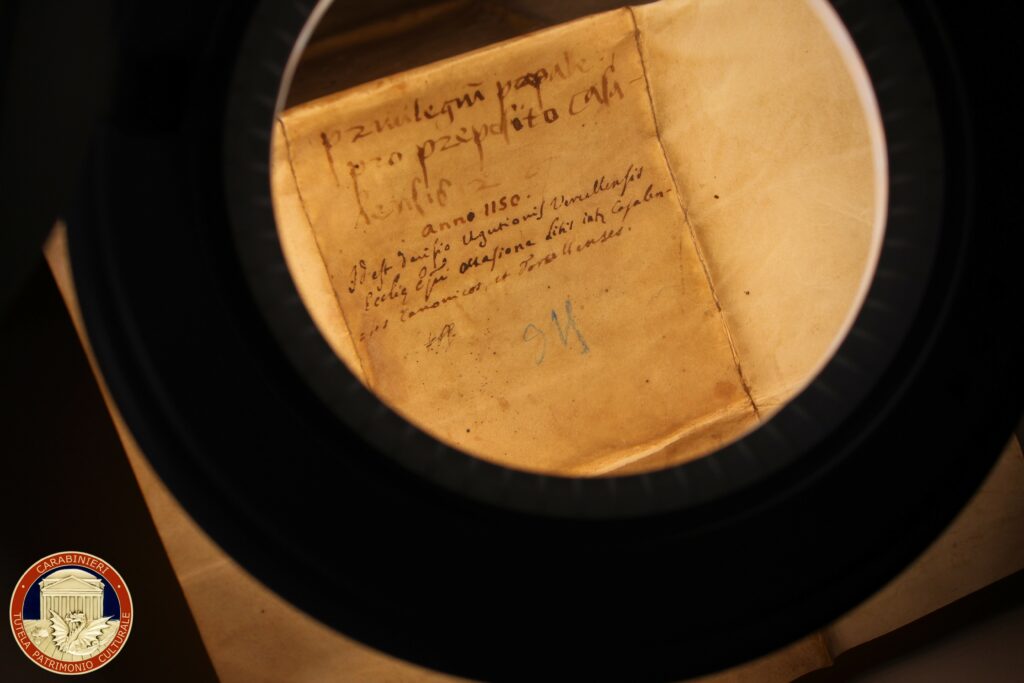 pzivilegiu papale
pro pzeposito Casa-
lensis
anno 1150.
Id est decisio Ugutionis Vercellensis
Ecclie Epi occasione litis inter Casalen-
ses Canonicos, et
CARABINIERI
TUTELA PATRIMONIO CULTURALE